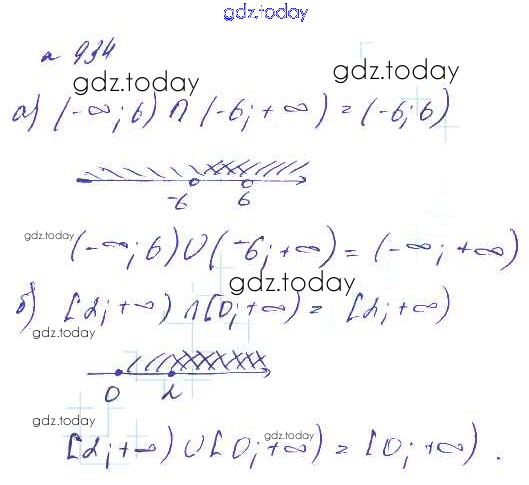 gdz.today
№ 934
gdz.today gdz.today
а) (-∞; 6) ∩ (-6; +∞) = (-6; 6)
-6 6
gdz.today
(-∞; 6) ∪ (-6; +∞) = (-∞; +∞)
gdz.today gdz.today
б) [2; +∞) ∩ [0; +∞) = [2; +∞)
gdz.today
0 2
gdz.today gdz.today
[2; +∞) ∪ [0; +∞) = [0; +∞).